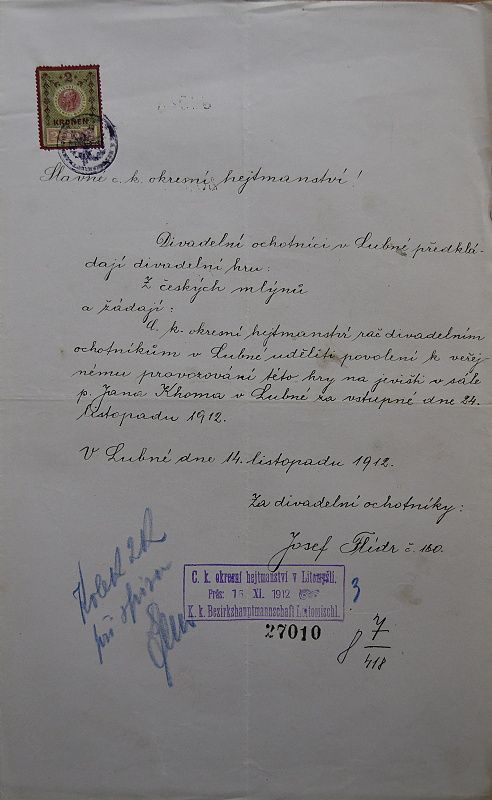 2
KRONEN
Slavné c. k. okresní hejtmanství!
Divadelní ochotníci v Lubné předklá-
dají divadelní hru:
Z českých mlýnů
a žádají:
C. k. okresní hejtmanství rač divadelním
ochotníkům v Lubné uděliti povolení k veřej-
nému provozování této hry na jevišti v sále
p. Jana Khoma v Lubné za vstupné dne 24.
listopadu 1912.
V Lubné dne 14. listopadu 1912.
Za divadelní ochotníky:
Josef Flídr č. 180.
Kolek 2K
při spisu
C. k. okresní hejtmanství v Litomyšli.
Präs: 15. XI. 1912
K. k. Bezirkshauptmannschaft Leitomischl.
3
27010
7
418